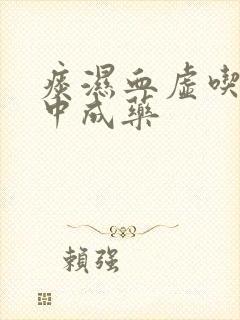 痰濕血虛喫
中成藥
賴強